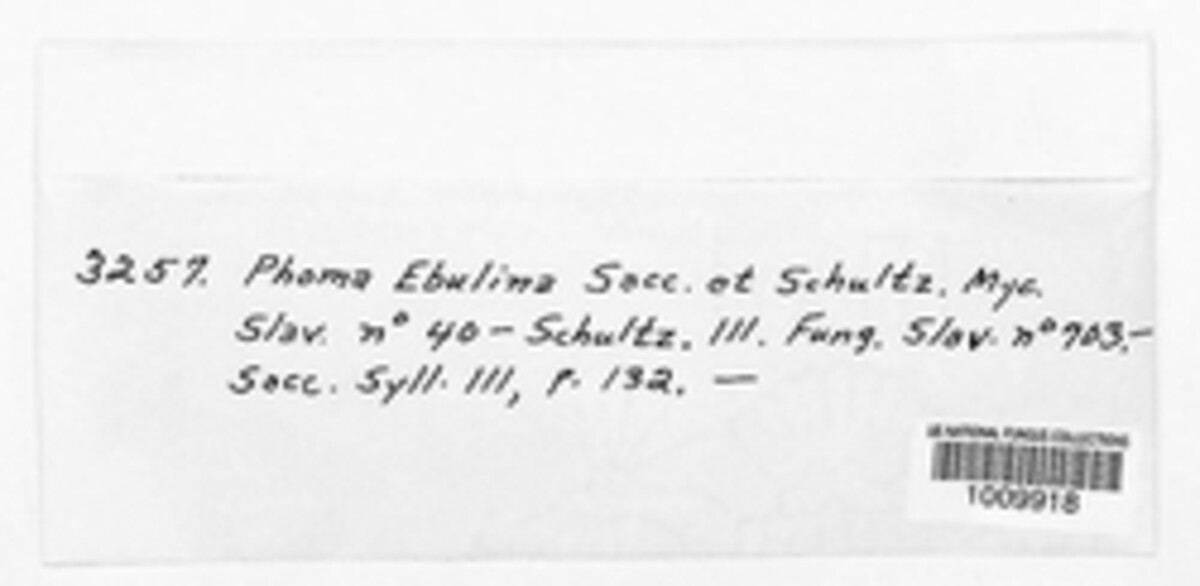 3257. Phoma Ebulina Sacc. et Schultz. Myc.
Slav. nº 40 — Schultz. Ill. Fung. Slav. nº 703. —
Sacc. Syll. III, p. 132. —
US NATIONAL FUNGUS COLLECTIONS
1009918